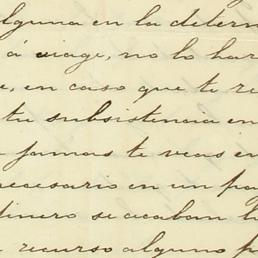 lguna en la determ
á viage, no lo har
e, en caso que te re
tu subsistencia en
jamas te veas en
necesario en un pa
dinero se acaban l
recurso alguno p